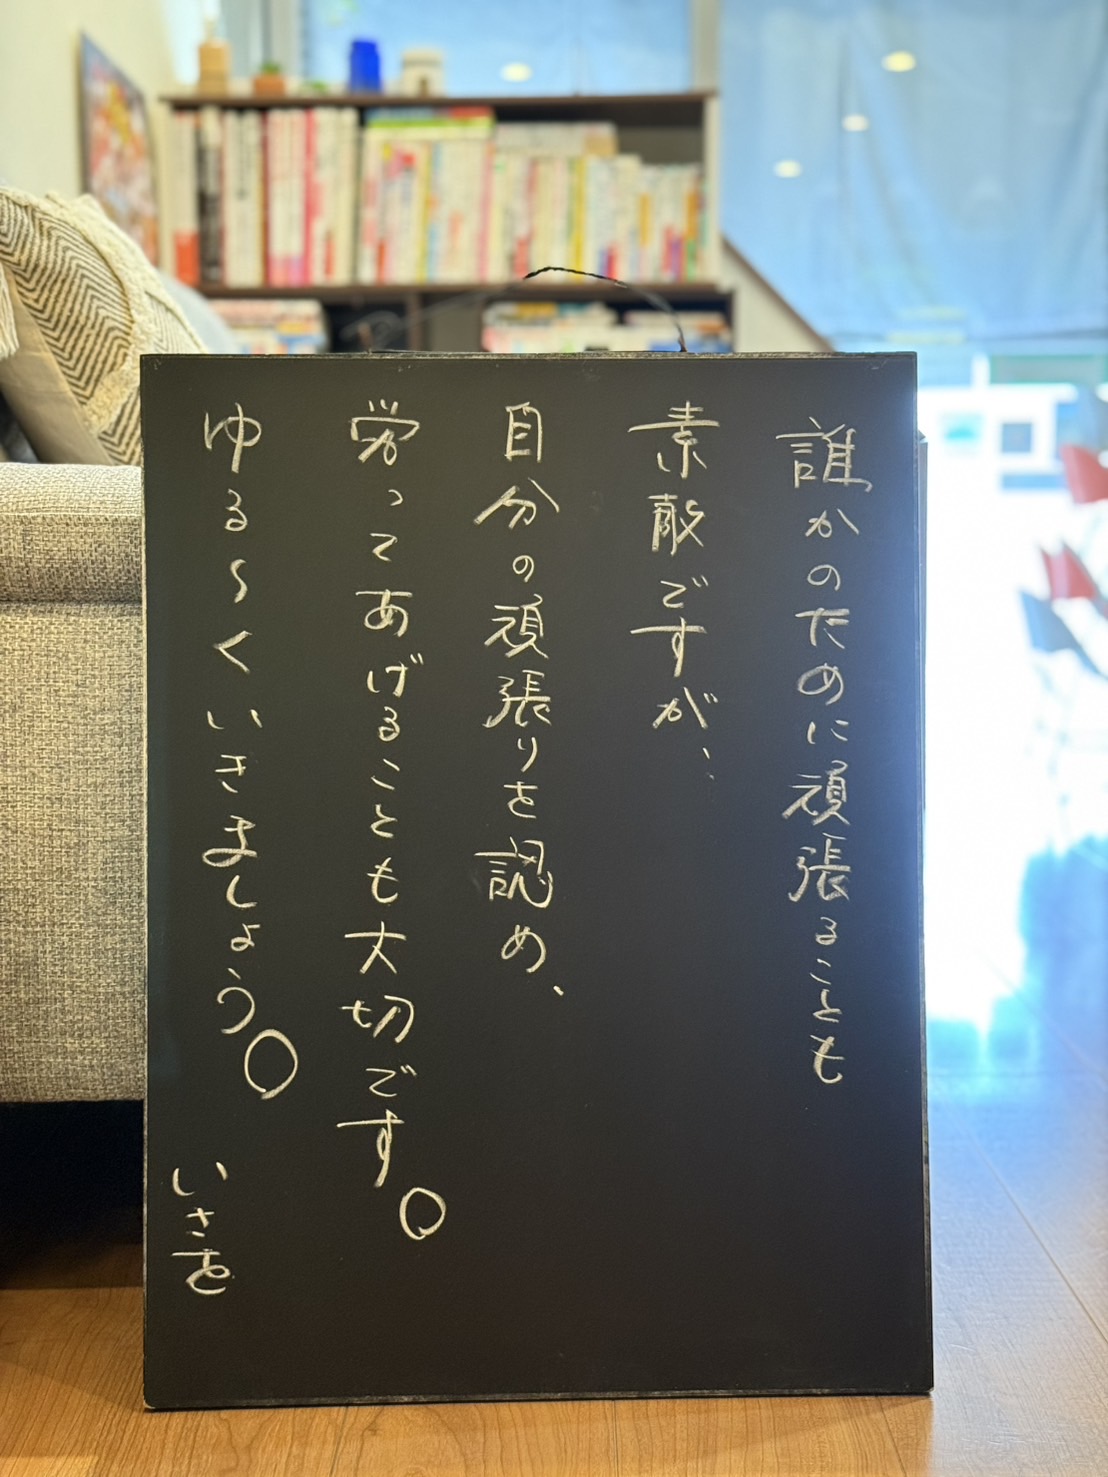 誰かのために頑張ることも
素敵ですが、
自分の頑張りを認め、
労ってあげることも大切です。
ゆる〜くいきましょう。
いさを